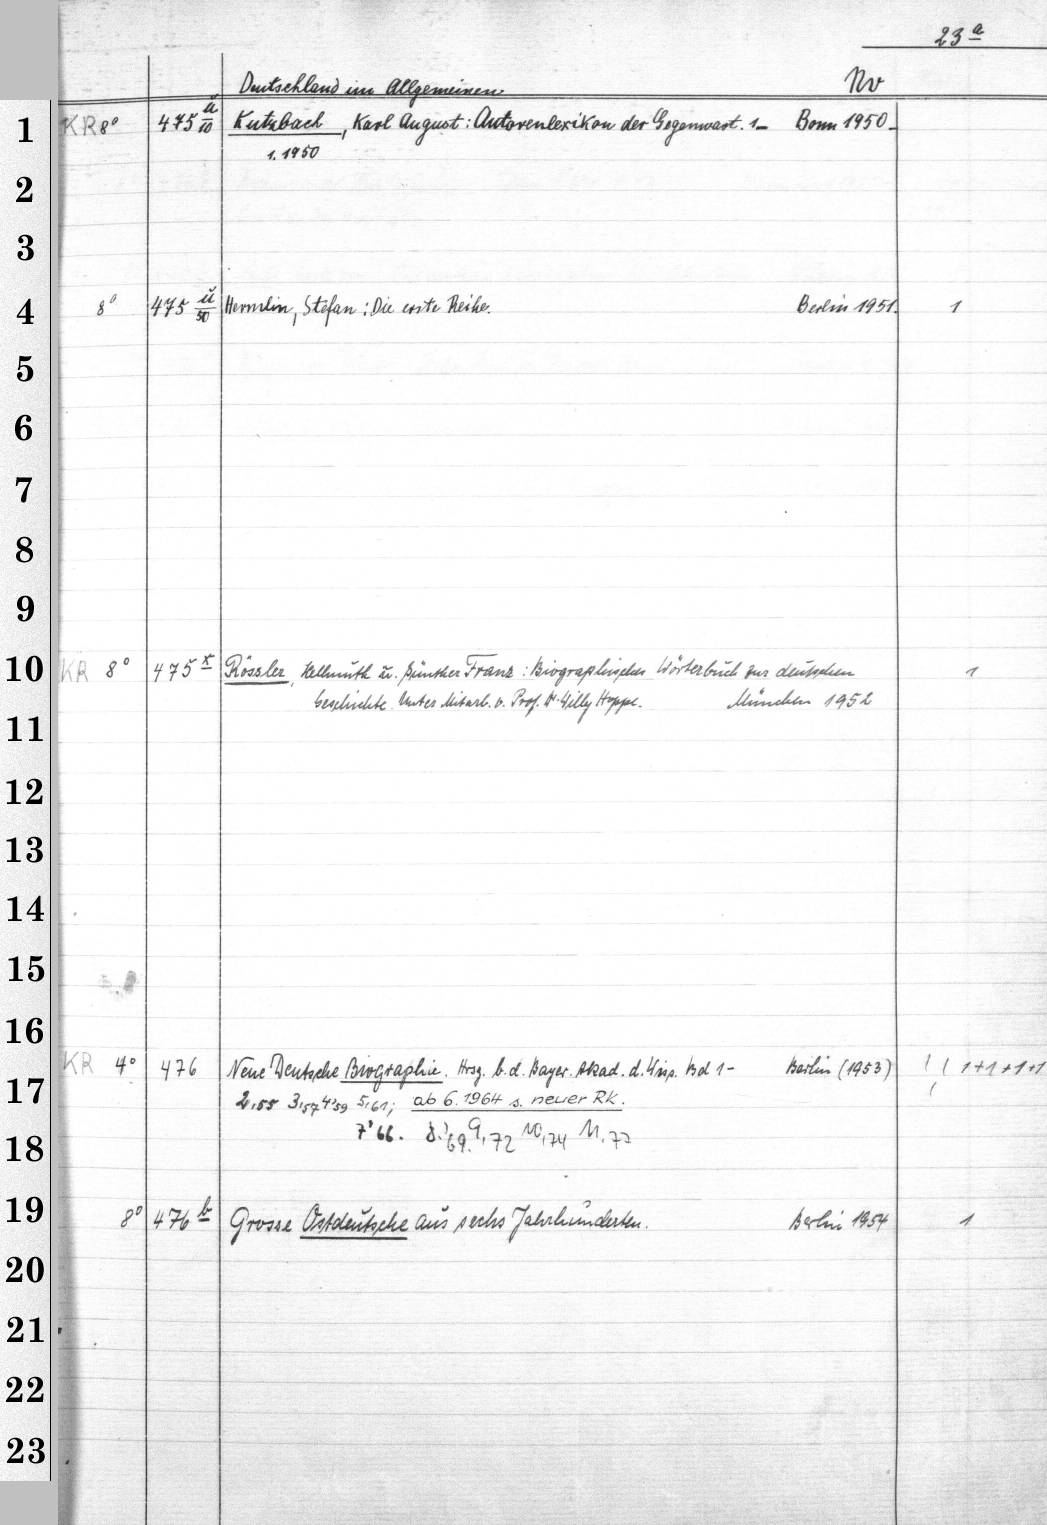 23 a
Deutschland im Allgemeinen Nv
1 KR 8° 475 ü/10 Kutzbach, Karl August: Autorenlexikon der Gegenwart. 1- Bonn 1950-
1. 1950
2
3
4 8° 475 ü/50 Hermlin, Stefan: Die erste Reihe. Berlin 1951. 1
5
6
7
8
9
10 KR 8° 475 x Rössler, Hellmuth u. Günther Franz: Biographisches Wörterbuch zur deutschen 1
11 Geschichte. Unter Mitarb. v. Prof. Dr. Willy Hoppe. München 1952
12
13
14
15
16
KR 4° 476 Neue Deutsche Biographie. Hrsg. b. d. Bayer. Akad. d. Wiss. Bd 1- Berlin (1953) 1+1+1+1
17 2,55 3,57 4,59 5,61; ab 6.1964 s. neuer RK.
18 7'66. 8.'69. 9,72 10,74 11.77
19 8° 476 b Grosse Ostdeutsche aus sechs Jahrhunderten. Berlin 1954 1
20
21
22
23